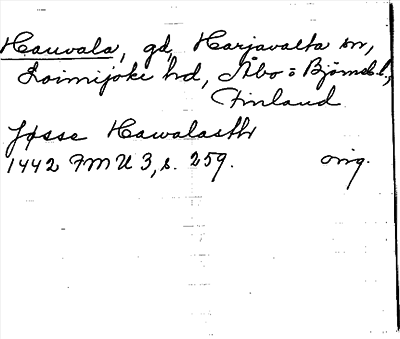 Hauvala, gd, Harjavalta sn,
Loimijoki hd, Åbo o Björneb. l.,
Finland
Jösse Hawalasth
1442 FMU 3, s. 259. orig.